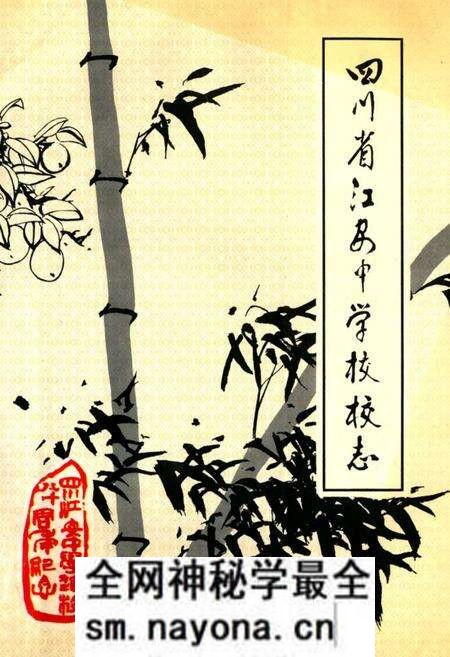 四川省江安中学校校志
全网神秘学最全
sm.nayona.cn